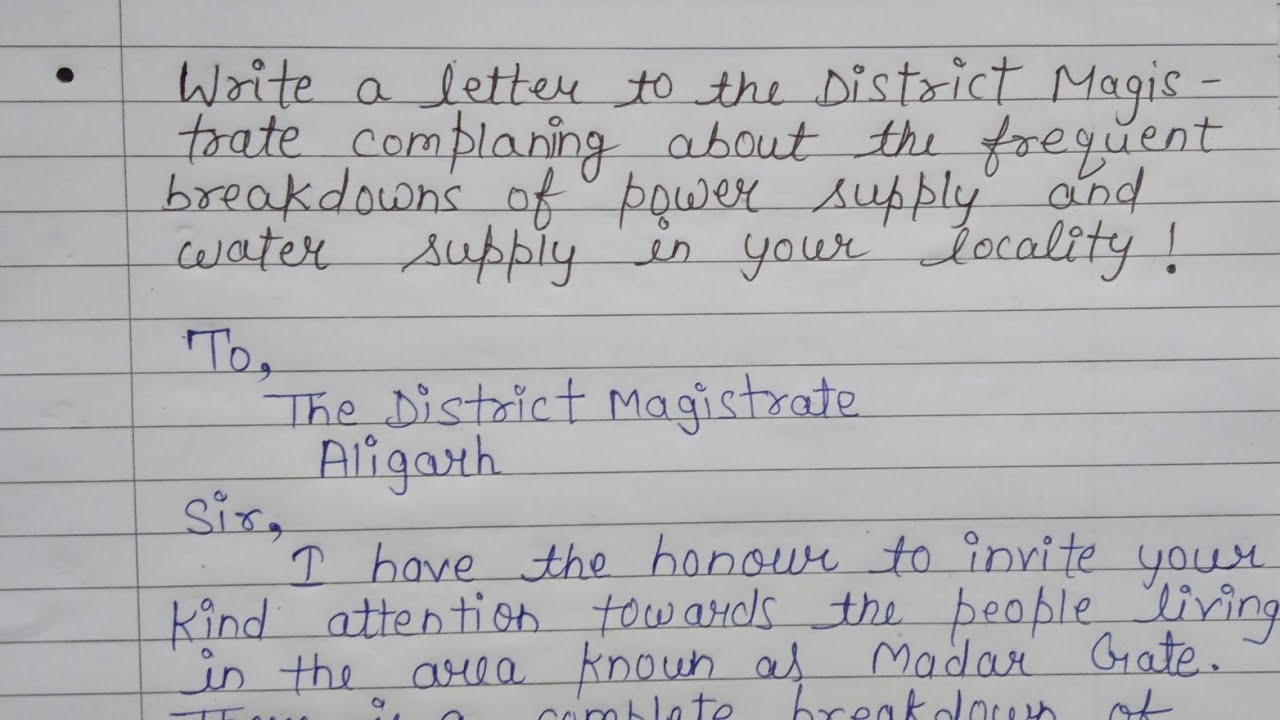 • Write a letter to the District Magis-
trate complaning about the frequent
breakdowns of power supply and
water supply in your locality!
To,
The District Magistrate
Aligarh
Sir,
I have the honour to invite your
kind attention towards the people living
in the area known as Madar Gate.
There is a complete breakdown of